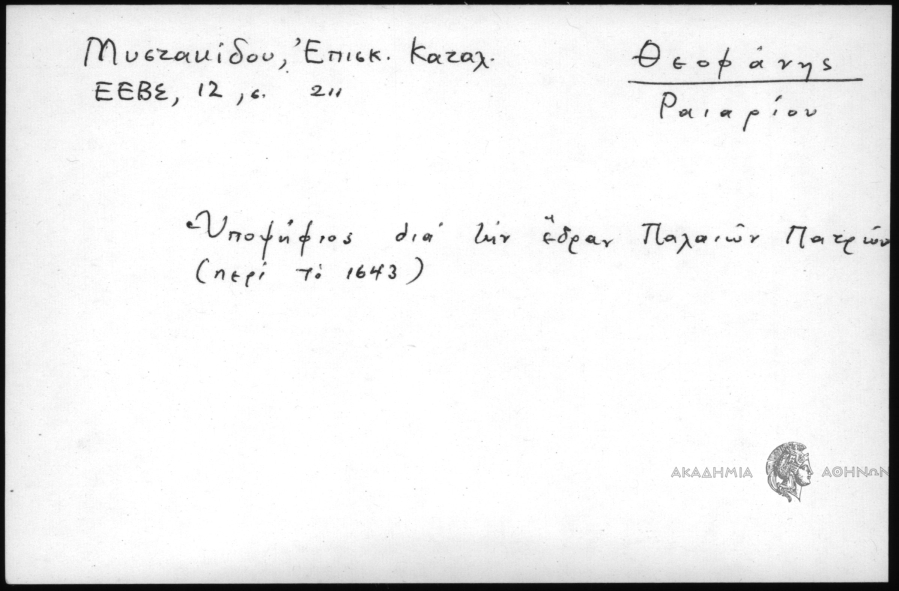 Μυστακίδου, Ἐπισκ. Καταλ.
ΕΕΒΣ, 12, σ. 211
Θεοφάνης
Ραιαρίου
Ὑποψήφιος διά τήν ἕδραν Παλαιῶν Πατρῶν
(περί τό 1643)
ΑΚΑΔΗΜΙΑ ΑΘΗΝΩΝ